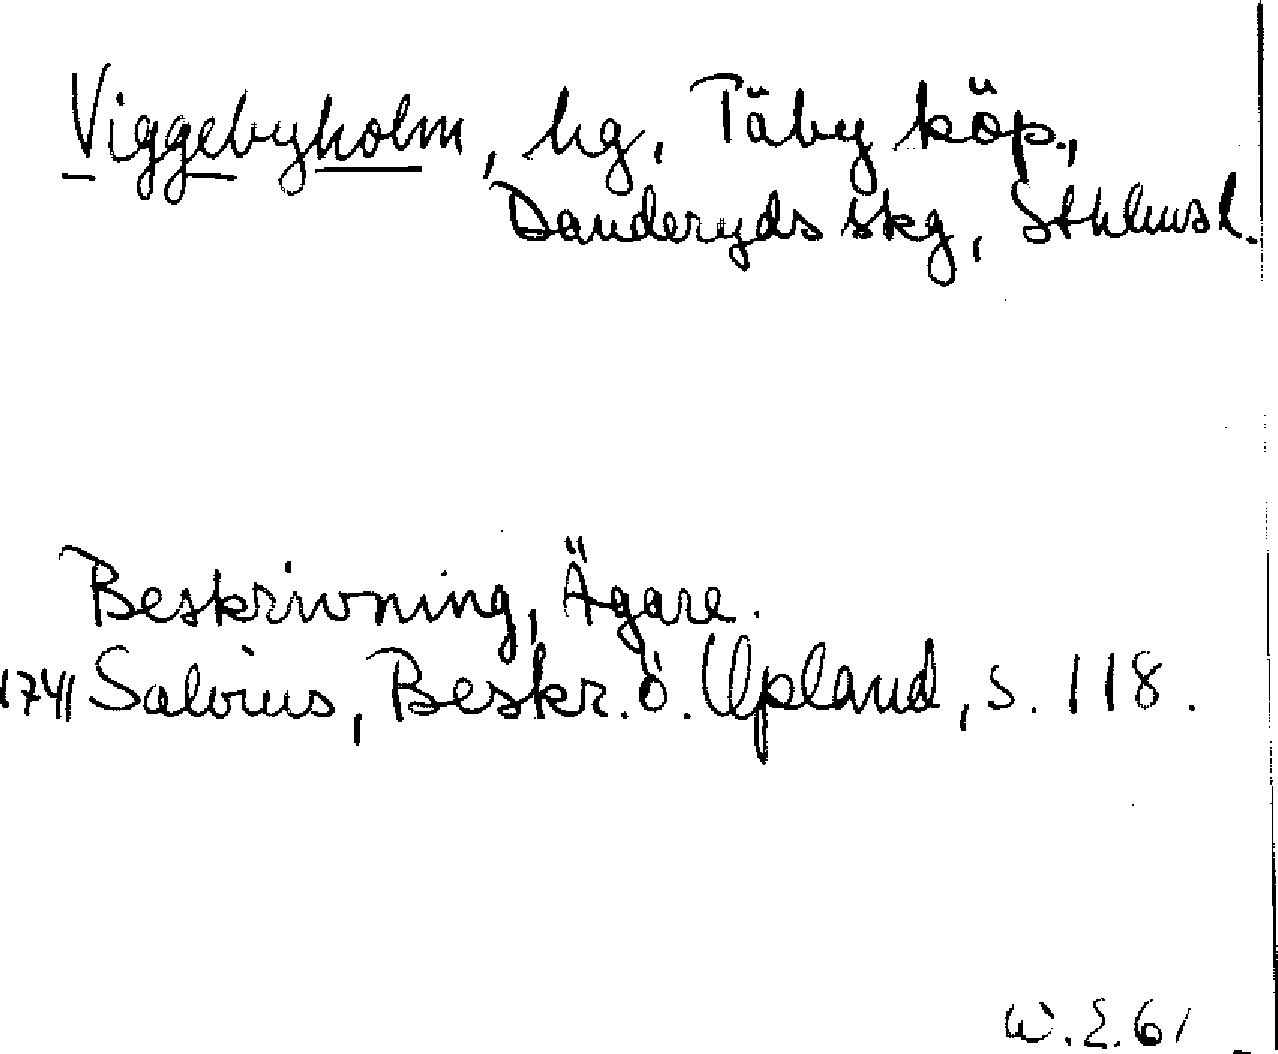 Viggebyholm, hg, Täby köp.,
Danderyds skg, Sthlmsl.
Beskrivning, Ägare.
1741 Salvius, Beskr. ö. Upland, s. 118.
W.E.61